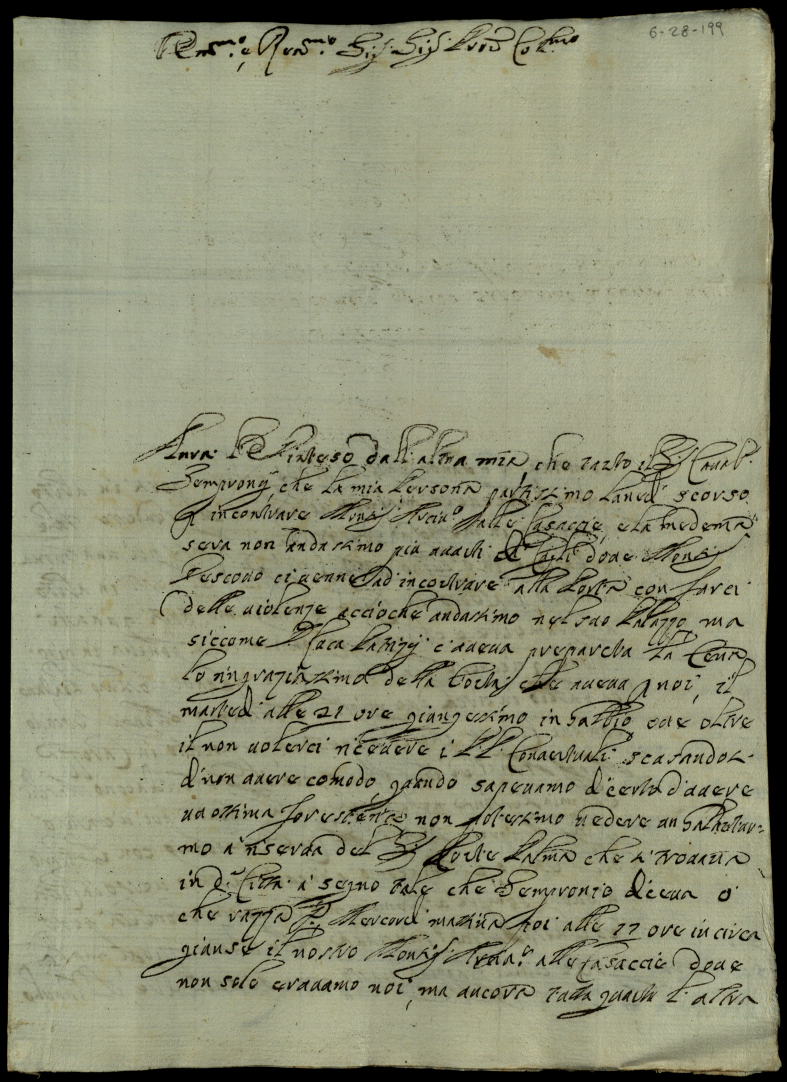 6-28-199
Ill.mo, e Rev.mo Sig. Sig. Pron. Col.mo
Avrà V.S. inteso dall'altra mia, che tanto il Sig. Caval.
Sempronij, che la mia Persona partissimo Lunedì scorso
p. incontrare Monsig. alle Casaccie, e la medema
sera non andassimo più avanti di Cagli dove Monsig.
Vescovo ci venne ad incontrare alla Porta con farci
delle violenze acciochè andassimo nel suo Palazzo, ma
siccome Luca c'aveva preparata la Cena
lo ringraziassimo della bontà, che aveva p. noi, il
martedì alle 21 ore giungessimo in Gubbio, ove oltre
il non volerci ricevere i PP. Conventuali scusandosi
di non avere comodo, quando sapevamo di certo d'avere
un ottima foresteria non potessimo vedere un
mo a riserva del Sig. Conte Palma che si trovava
in d.a Città a segno tale che Sempronio diceva o
che razza Mercordì mattina poi alle 17 ore in circa
giunse il nostro Monsig. alle Casaccie dove
non solo eravamo noi, ma ancora tutta quanta l'altra